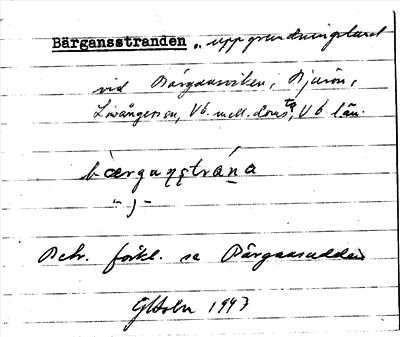 Bärgansstranden „ uppgrundningsland
vid Bärgansviken, Bjurön,
Lövångers sn, Vb. mell. doms, Vb län.
bærganstrána
Betr. förkl. se Bärgansudden
GHolm 1947